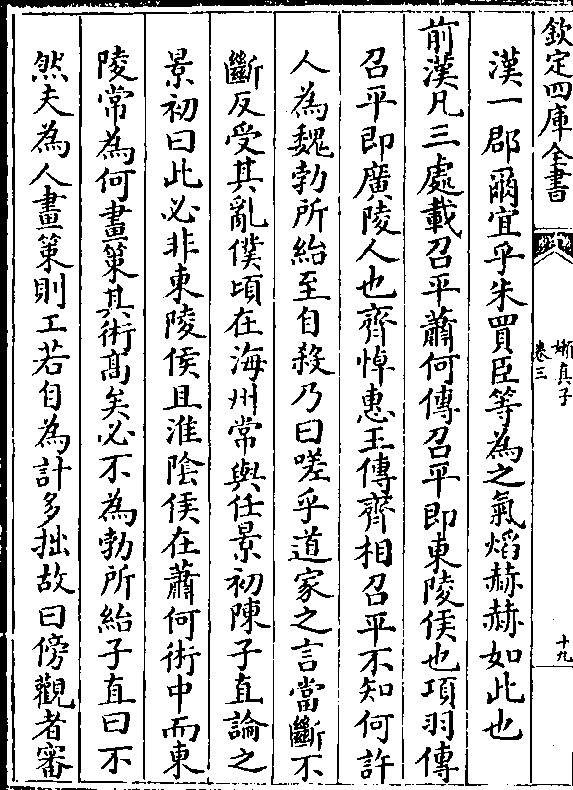 欽定四庫全書
嬾真子
卷三
十九
漢一郡爾宜乎朱買臣等為之氣熖赫赫如此也
前漢凡三處載召平蕭何傳召平即東陵侯也項羽傳
召平即廣陵人也齊悼惠王傳齊相召平不知何許
人為魏勃所紿至自殺乃曰嗟乎道家之言當斷不
斷反受其亂僕頃在海州常與任景初陳子直論之
景初曰此必非東陵侯且淮陰侯在蕭何術中而東
陵常為何畫策其術髙矣必不為勃所紿子直曰不
然夫為人畫策則工若自為計多拙故曰傍觀者審